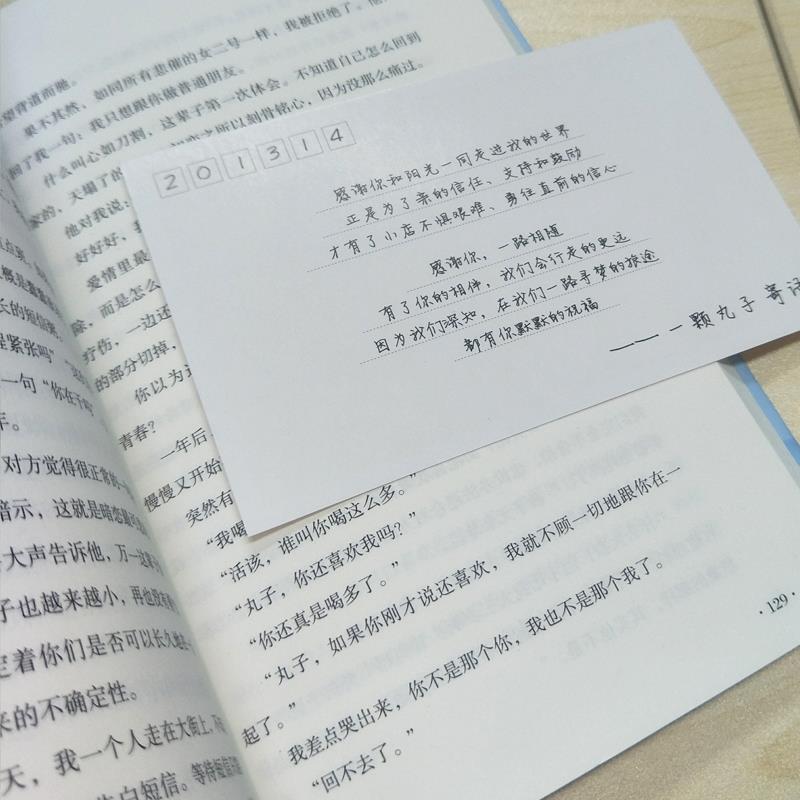 望背道而驰。
果不其然，如同所有悲催的女二号一样，我被拒绝了。
回了我一句：我只想跟你做普通朋友。
什么叫心如刀割，这辈子第一次体会。不知道自己怎么回到
家的，天塌了的
之所以刻骨铭心，因为没那么痛过。
他对我说：
好好好，我
爱情里最
除，而是怎么
疗伤，一边还
的部分切掉，
你以为这
青春？
一年后
慢慢又开始
突然有
“我喝
“活该，谁叫你喝这么多。”
“丸子，你还喜欢我吗？”
“你还真是喝多了。”
“丸子，如果你刚才说还喜欢，我就不顾一切地跟你在一
起了。”
我差点哭出来，你不是那个你，我也不是那个我了。
“回不去了。”
·129·
201314
感谢你和阳光一同走过我的世界
正是为了亲的信任、支持和鼓励
才有了小店不惧艰难、勇往直前的信心
感谢你，一路相随
有了你的相伴，我们会行走的更远
因为我们深知，在我们一路寻梦的旅途
都有你默默的祝福
—— 一颗丸子 寄语
长的短信
程紧张吗”
一句“你在干吗
年。
对方觉得很正常
暗示，这就是暗恋
大声告诉他，万一
子也越来越小，再也
定着你们是否可以长久地
来的不确定性。
天，我一个人走在大街上，
告白短信。等待短信